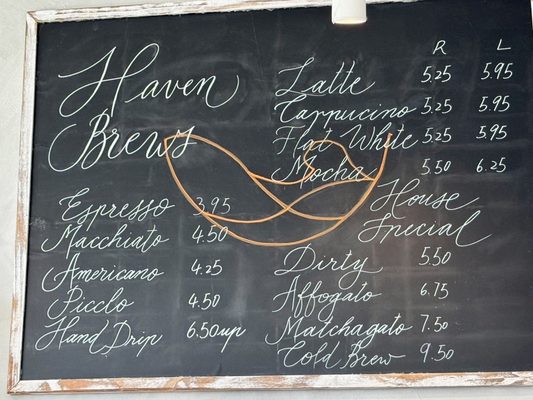 Haven
Brews
Espresso 3.95
Macchiato 4.50
Americano 4.25
Picclo 4.50
Hand Drip 6.50up
R L
Latte 5.25 5.95
Cappucino 5.25 5.95
Flat White 5.25 5.95
Mocha 5.50 6.25
House
Special
Dirty 5.50
Affogato 6.75
Matchagato 7.50
Cold Brew 9.50